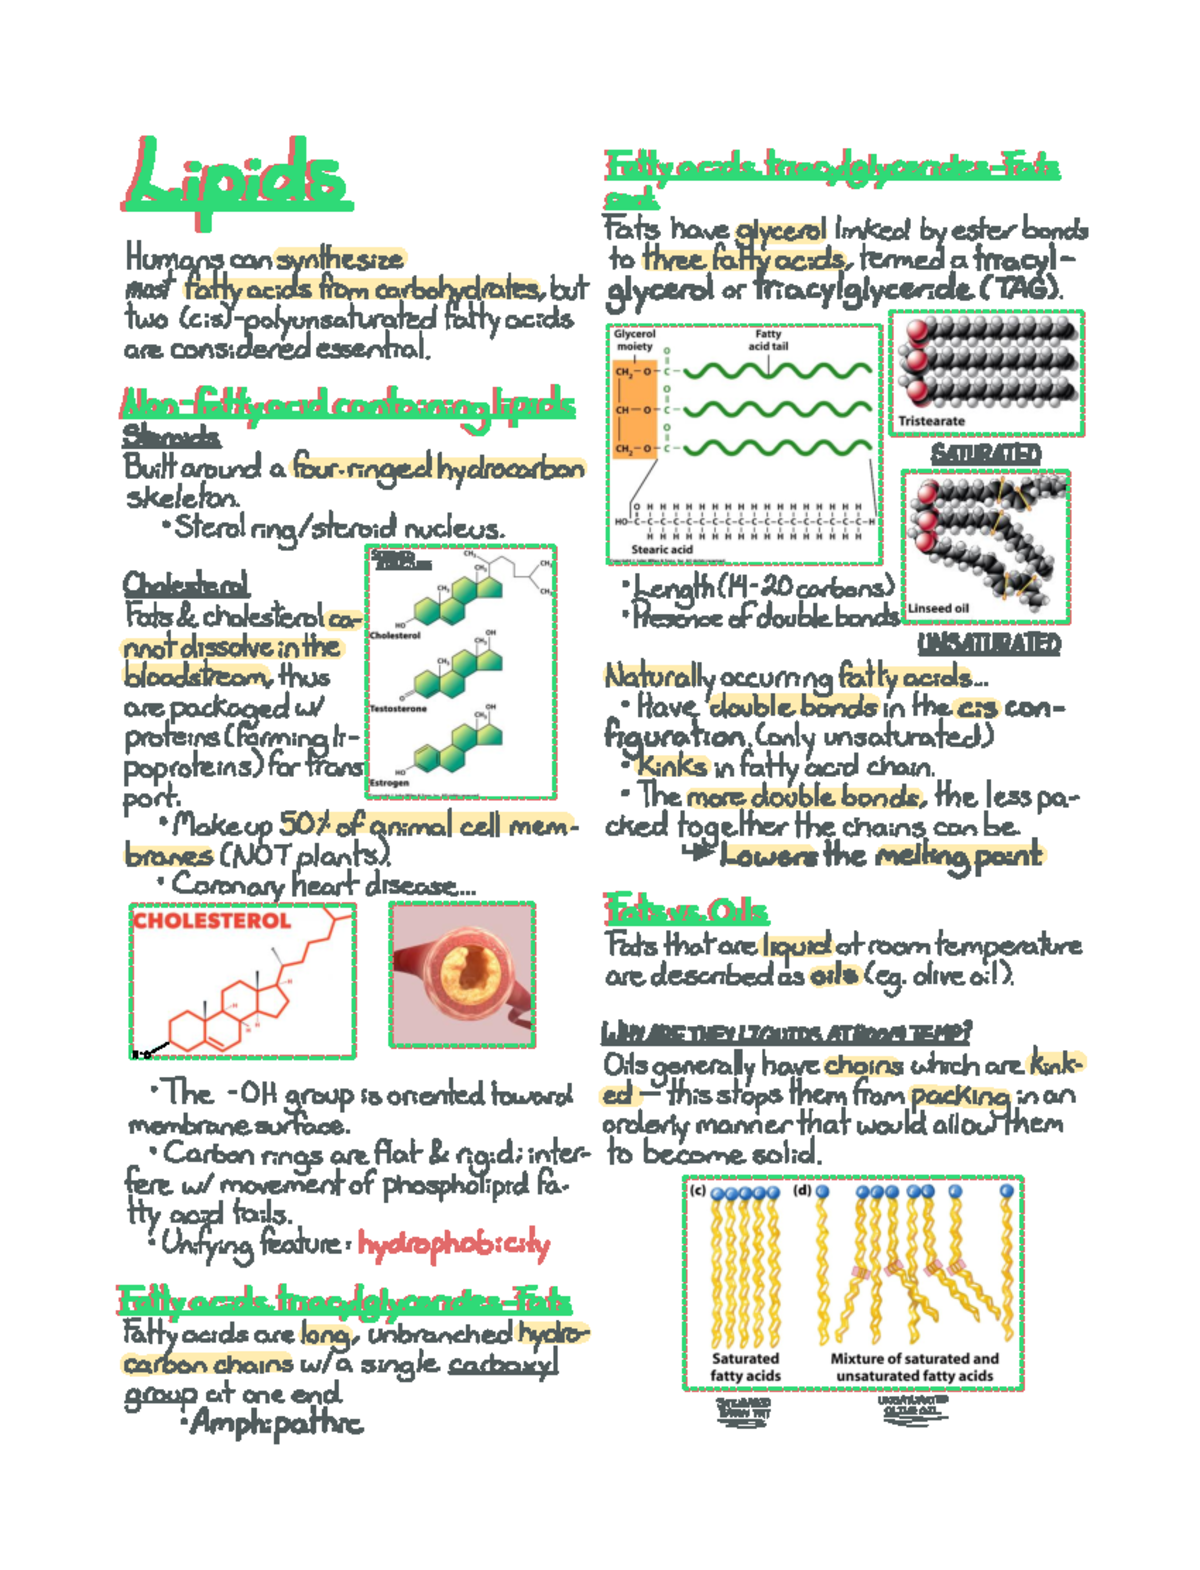 Lipids
Humans can synthesize
most fatty acids from carbohydrates, but
two (cis)-polyunsaturated fatty acids
are considered essential.
Non-fatty acid containing lipids
Steroids
Built around a four-ringed hydrocarbon
skeleton.
• Sterol ring/steroid nucleus.
Cholesterol
Fats & cholesterol ca-
nnot dissolve in the
bloodstream, thus
are packaged w/
proteins (forming li-
poproteins) for trans
port.
CH₃
CH₃
CH₃
CH₃
CH₃
HO
Cholesterol
OH
CH₃
CH₃
O
Testosterone
OH
CH₃
HO
Estrogen
• Make up 50% of animal cell mem-
branes (NOT plants).
• Coronary heart disease...
CHOLESTEROL
H
H
H
H
H-O
• The -OH group is oriented toward
membrane surface.
• Carbon rings are flat & rigid; inter-
fere w/ movement of phospholipid fa-
tty acid tails.
• Unifying feature: hydrophobicity
Fatty acids, triacylglycerides-Fats
Fatty acids are long, unbranched hydro-
carbon chains w/ a single carboxyl
group at one end
• Amphipathic
Fatty acids, triacylglycerides-Fats
cont.
Fats have glycerol linked by ester bonds
to three fatty acids, termed a triacyl-
glycerol or triacylglyceride (TAG).
Glycerol moiety
Fatty acid tail
O
CH₂—O—C—
O
CH—O—C—
O
CH₂—O—C—
O H H H H H H H H H H H H H H H H H
HO-C-C-C-C-C-C-C-C-C-C-C-C-C-C-C-C-C-C-H
H H H H H H H H H H H H H H H H H
Stearic acid
Tristearate
SATURATED
Linseed oil
UNSATURATED
• Length (14-20 carbons)
• Presence of double bonds
Naturally occurring fatty acids...
• Have double bonds in the cis con-
figuration. (only unsaturated)
• Kinks in fatty acid chain.
• The more double bonds, the less pa-
cked together the chains can be.
↳ Lowers the melting point
Fats vs Oils
Fats that are liquid at room temperature
are described as oils (eg. olive oil).
WHY ARE THEY LIQUIDS AT ROOM TEMP?
Oils generally have chains which are kink-
ed — this stops them from packing in an
orderly manner that would allow them
to become solid.
(c)
(d)
Saturated
fatty acids
Mixture of saturated and
unsaturated fatty acids
UNSATURATED
OLIVE OIL